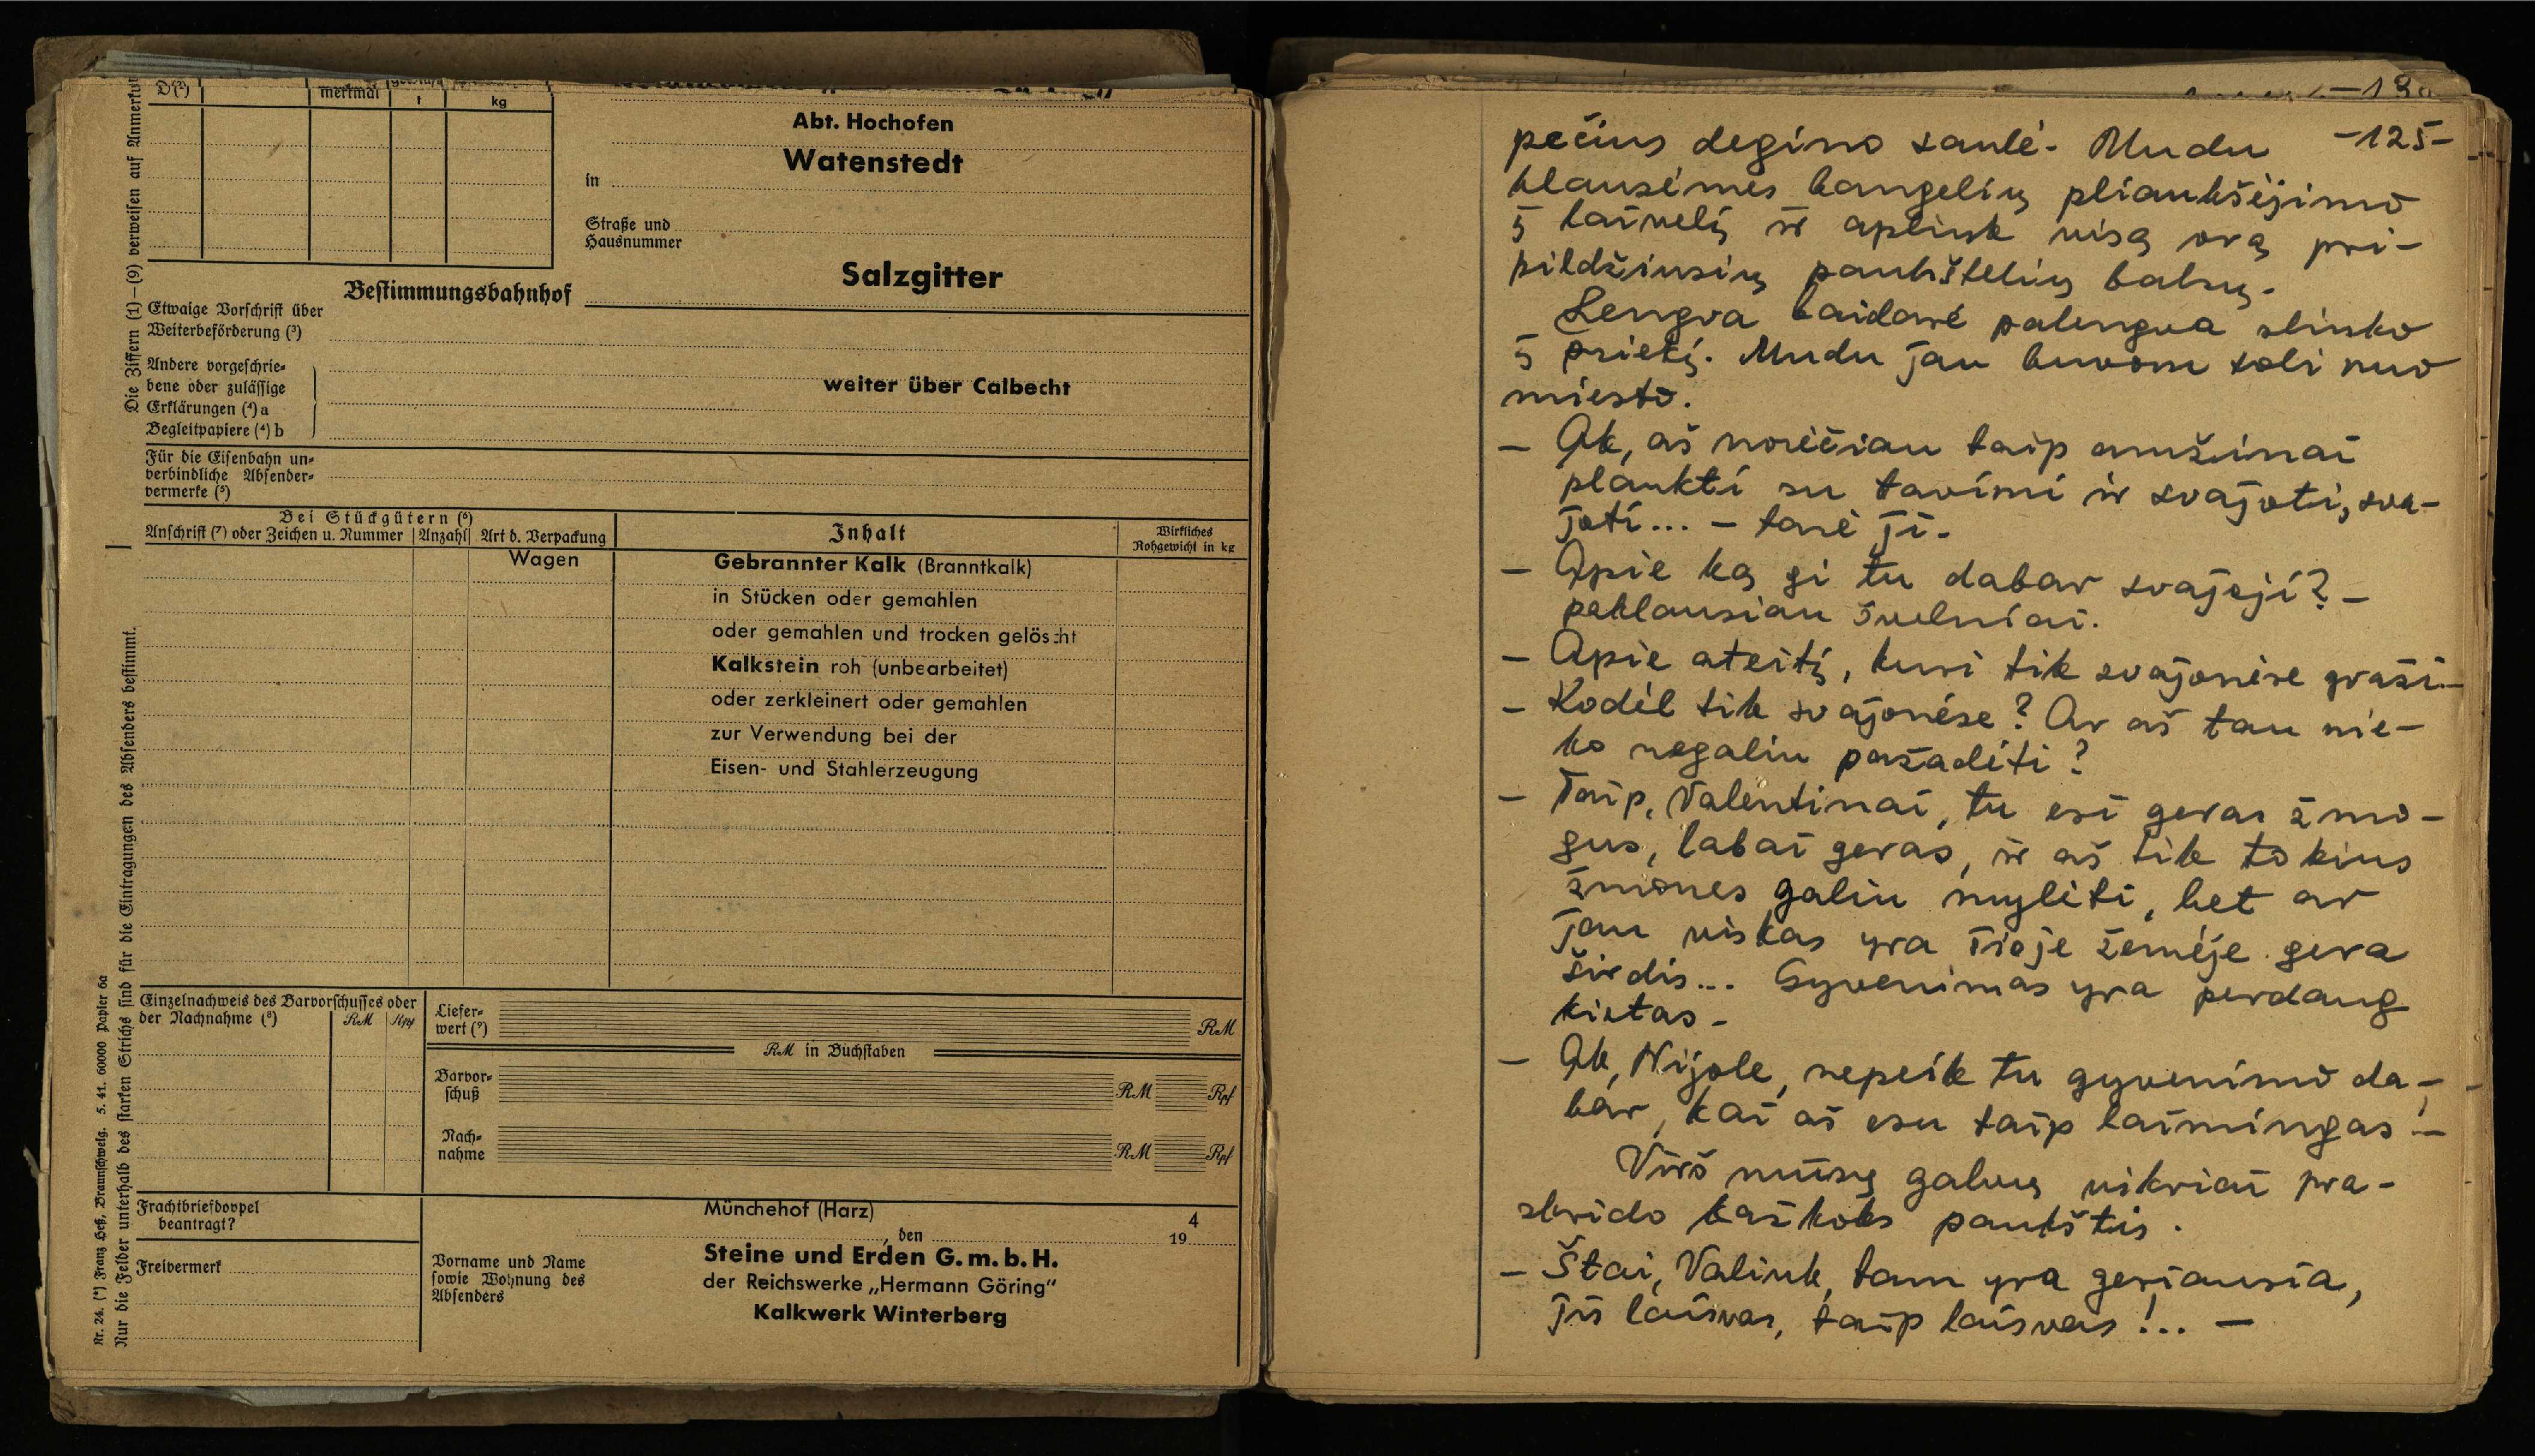 Die Ziffern (1)–(9) verweisen auf Anmerku
D(²)
merkmal
t
kg
Abt. Hochofen
Watenstedt
in
Straße und
Hausnummer
Salzgitter
Bestimmungsbahnhof
Etwaige Vorschrift über
Weiterbeförderung (³)
Andere vorgeschrie-
bene oder zulässige
Erklärungen (⁴) a
Begleitpapiere (⁴) b
weiter über Calbecht
Für die Eisenbahn un-
verbindliche Absender-
vermerke (⁵)
Bei Stückgütern (⁶)
Anschrift (⁷) oder Zeichen u. Nummer
Anzahl
Art d. Verpackung
Inhalt
Wirkliches
Rohgewicht in kg
Wagen
Gebrannter Kalk (Branntkalk)
in Stücken oder gemahlen
oder gemahlen und trocken gelöscht
Kalkstein roh (unbearbeitet)
oder zerkleinert oder gemahlen
zur Verwendung bei der
Eisen- und Stahlerzeugung
Einzelnachweis des Barvorschusses oder
der Nachnahme (⁸)
RM
Rpf
Liefer-
wert (⁹)
RM
RM in Buchstaben
Barvor-
schuß
RM
Rpf
Nach-
nahme
RM
Rpf
Frachtbriefdoppel
beantragt?
Freivermerk
Münchehof (Harz)
, den
194
Vorname und Name
sowie Wohnung des
Absenders
Steine und Erden G.m.b.H.
der Reichswerke „Hermann Göring“
Kalkwerk Winterberg
Nr. 24. (*) Franz Heß, Braunschweig. 5. 41. 60000 Papier 6a
Nur die Felder unterhalb des starken Strichs sind für die Eintragungen des Absenders bestimmt.
-125-
pečius degino saulė. Mudu
klausėmės bangelių pliaukšėjimo
į laivelį ir aplink visą orą pri-
pildžiusių paukštelių balsų.
Lengva baidarė palengva slinko
į priekį. Mudu jau buvom toli nuo
miesto.
– Ak, aš norėčiau taip amžinai
plaukti su tavimi ir svajoti, sva-
joti... – tarė ji.
– Apie ką gi tu dabar svajoji? –
paklausiau švelniai.
– Apie ateitį, kuri tik svajonėse graži –
– Kodėl tik svajonėse? Ar aš tau nie-
ko negaliu pažadėti?
– Taip, Valentinai, tu esi geras žmo-
gus, labai geras, ir aš tik tokius
žmones galiu mylėti, bet ar
jau viskas yra šioje žemėje gera
širdis... Gyvenimas yra perdaug
kietas.
– Ak, Nijole, nepeik tu gyvenimo da-
bar, kai aš esu taip laimingas –
Virš mūsų galvų vikriai pra-
skrido kažkoks paukštis.
– Štai, Valiuk, tam yra geriausia,
jis laisvas, taip laisvas!.. –